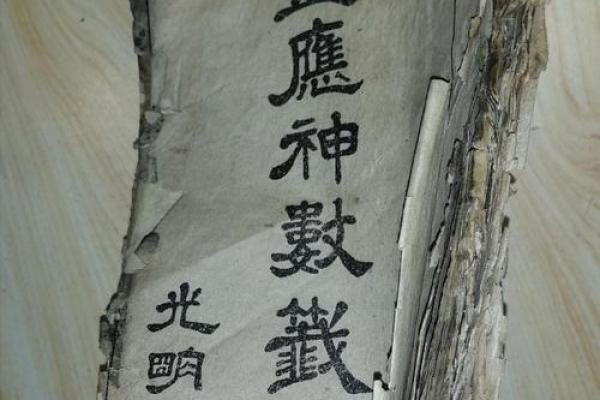 應神數籤
光明